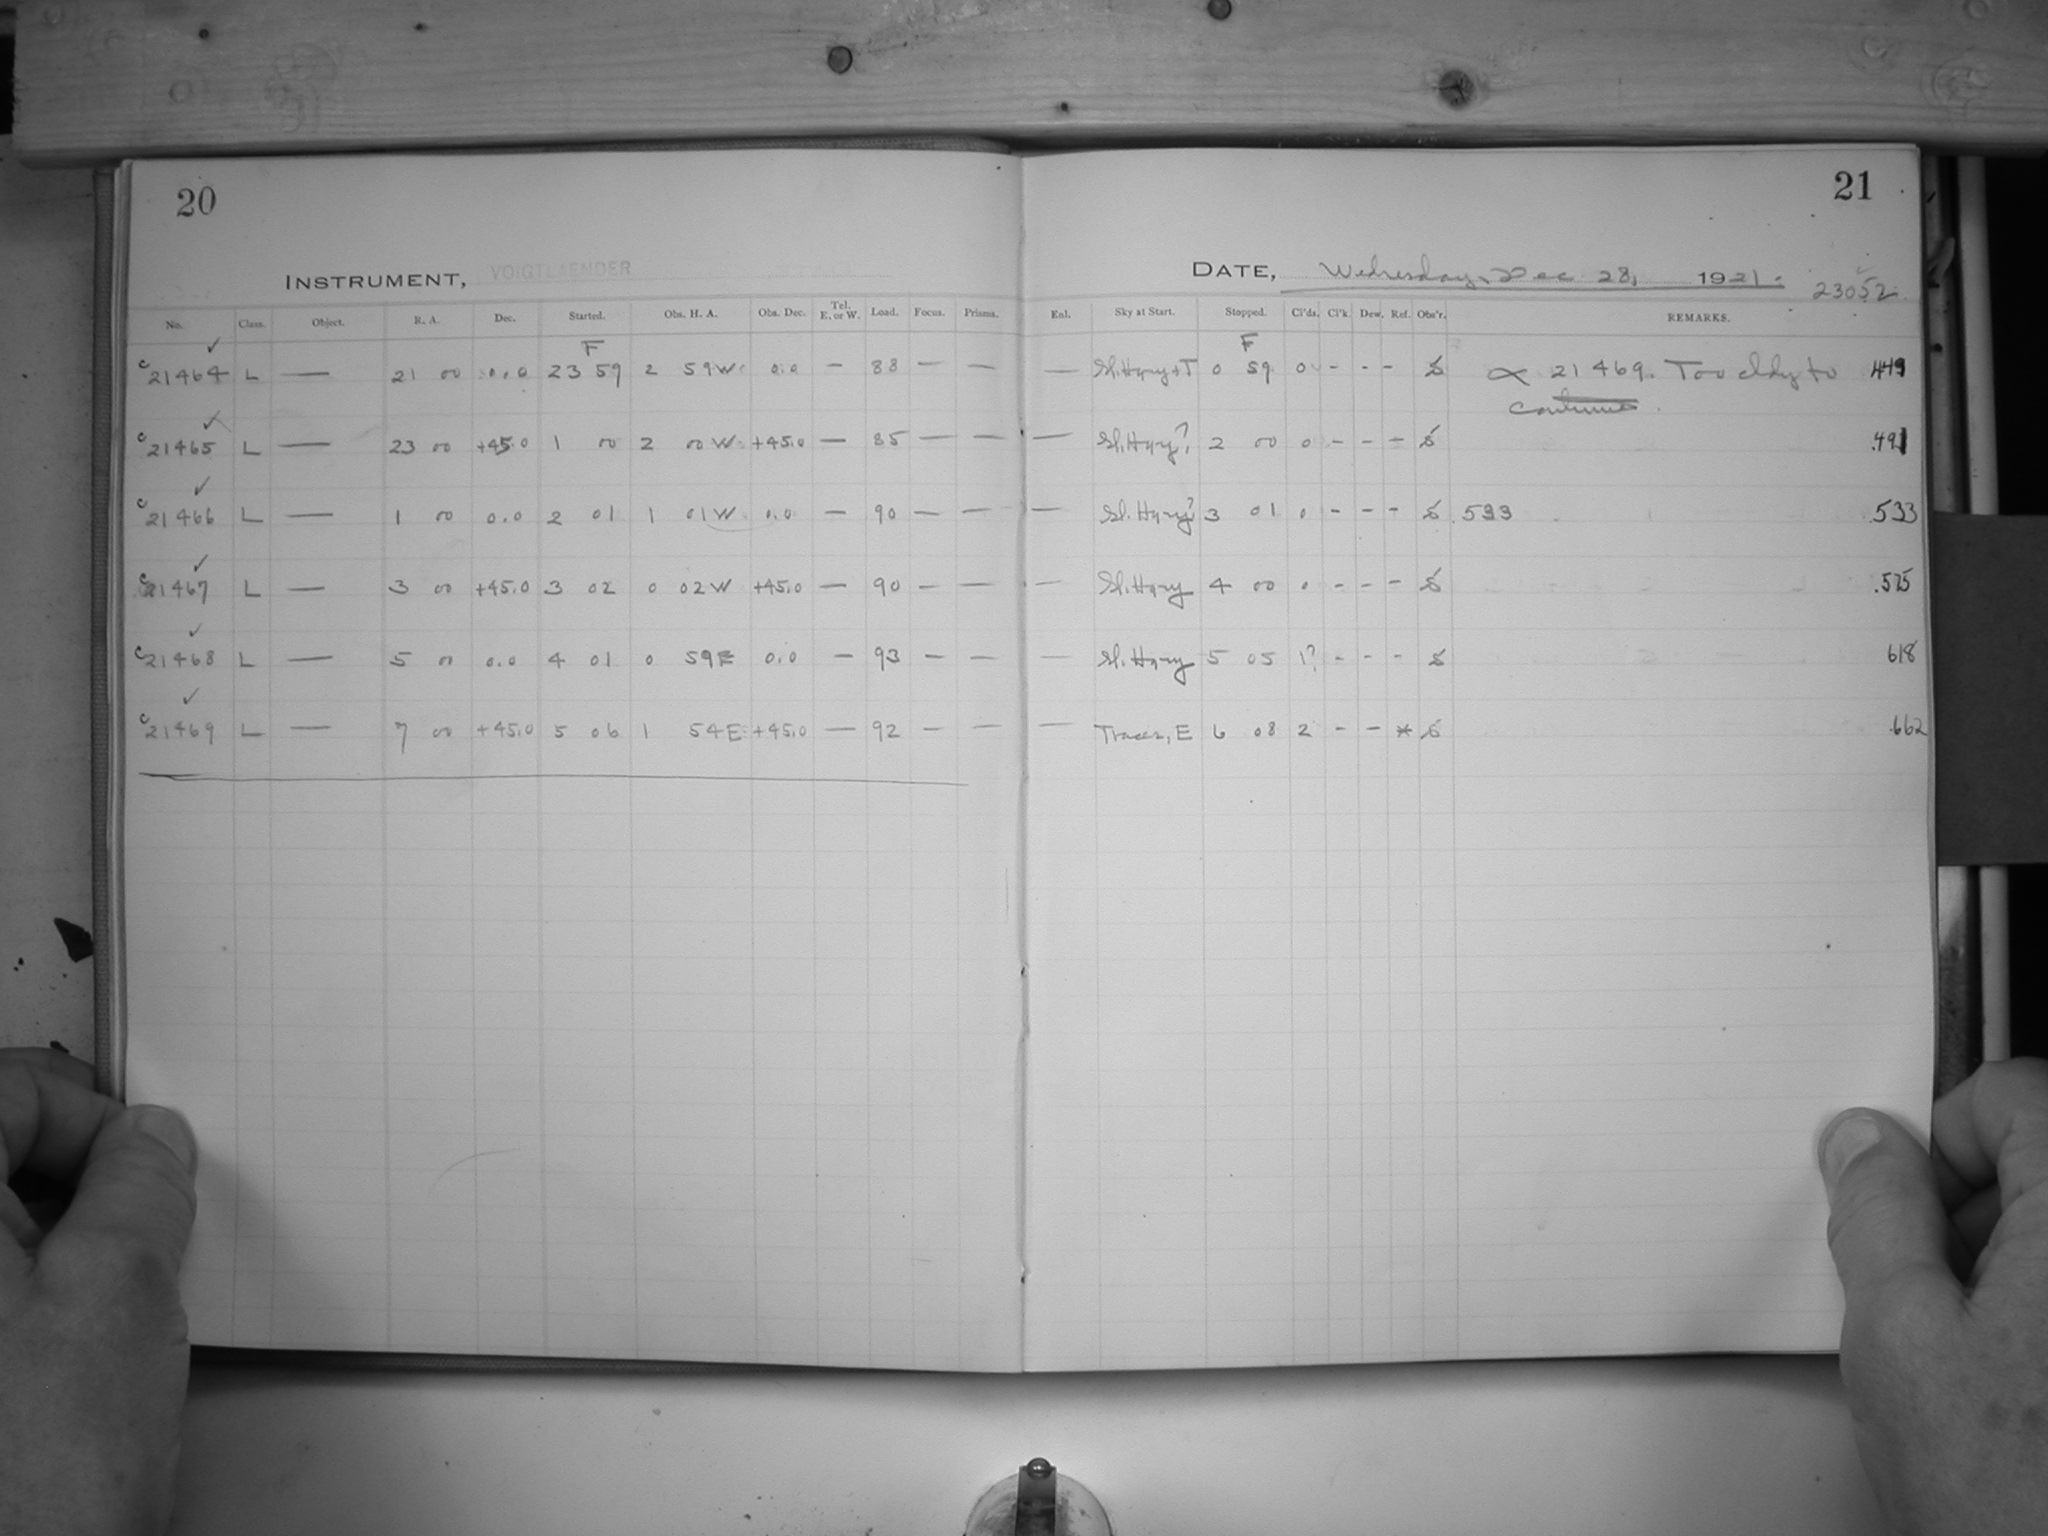 20
21
INSTRUMENT, VOIGTLAENDER
DATE, Wednesday, Dec 28, 1921.
23052
No. Class. Object. R. A. Dec. Started. Obs. H. A. Obs. Dec. Tel. E. or W. Load. Focus. Prisms. Enl. Sky at Start. Stopped. Cl'ds. Cl'k. Dew. Ref. Obs'r. REMARKS.
F F
c 21464 L — 21 00 0.0 23 59 2 59W 0.0 — 88 — — — Sl. Hazy + T 0 59 0 - - - ∝ 21469. Too cldy to 449
continue.
c 21465 L — 23 00 +45.0 1 00 2 00W +45.0 — 85 — — — Sl. Hazy? 2 00 0 - - - .491
c 21466 L — 1 00 0.0 2 01 1 01W 0.0 — 90 — — — Sl. Hazy? 3 01 0 - - - .533 .533
c 21467 L — 3 00 +45.0 3 02 0 02W +45.0 — 90 — — — Sl. Hazy 4 00 0 - - - .575
c 21468 L — 5 00 0.0 4 01 0 59E 0.0 — 93 — — — Sl. Hazy 5 05 1? - - - 618
c 21469 L — 7 00 +45.0 5 06 1 54E +45.0 — 92 — — — Traces, E 6 08 2 - - * .662